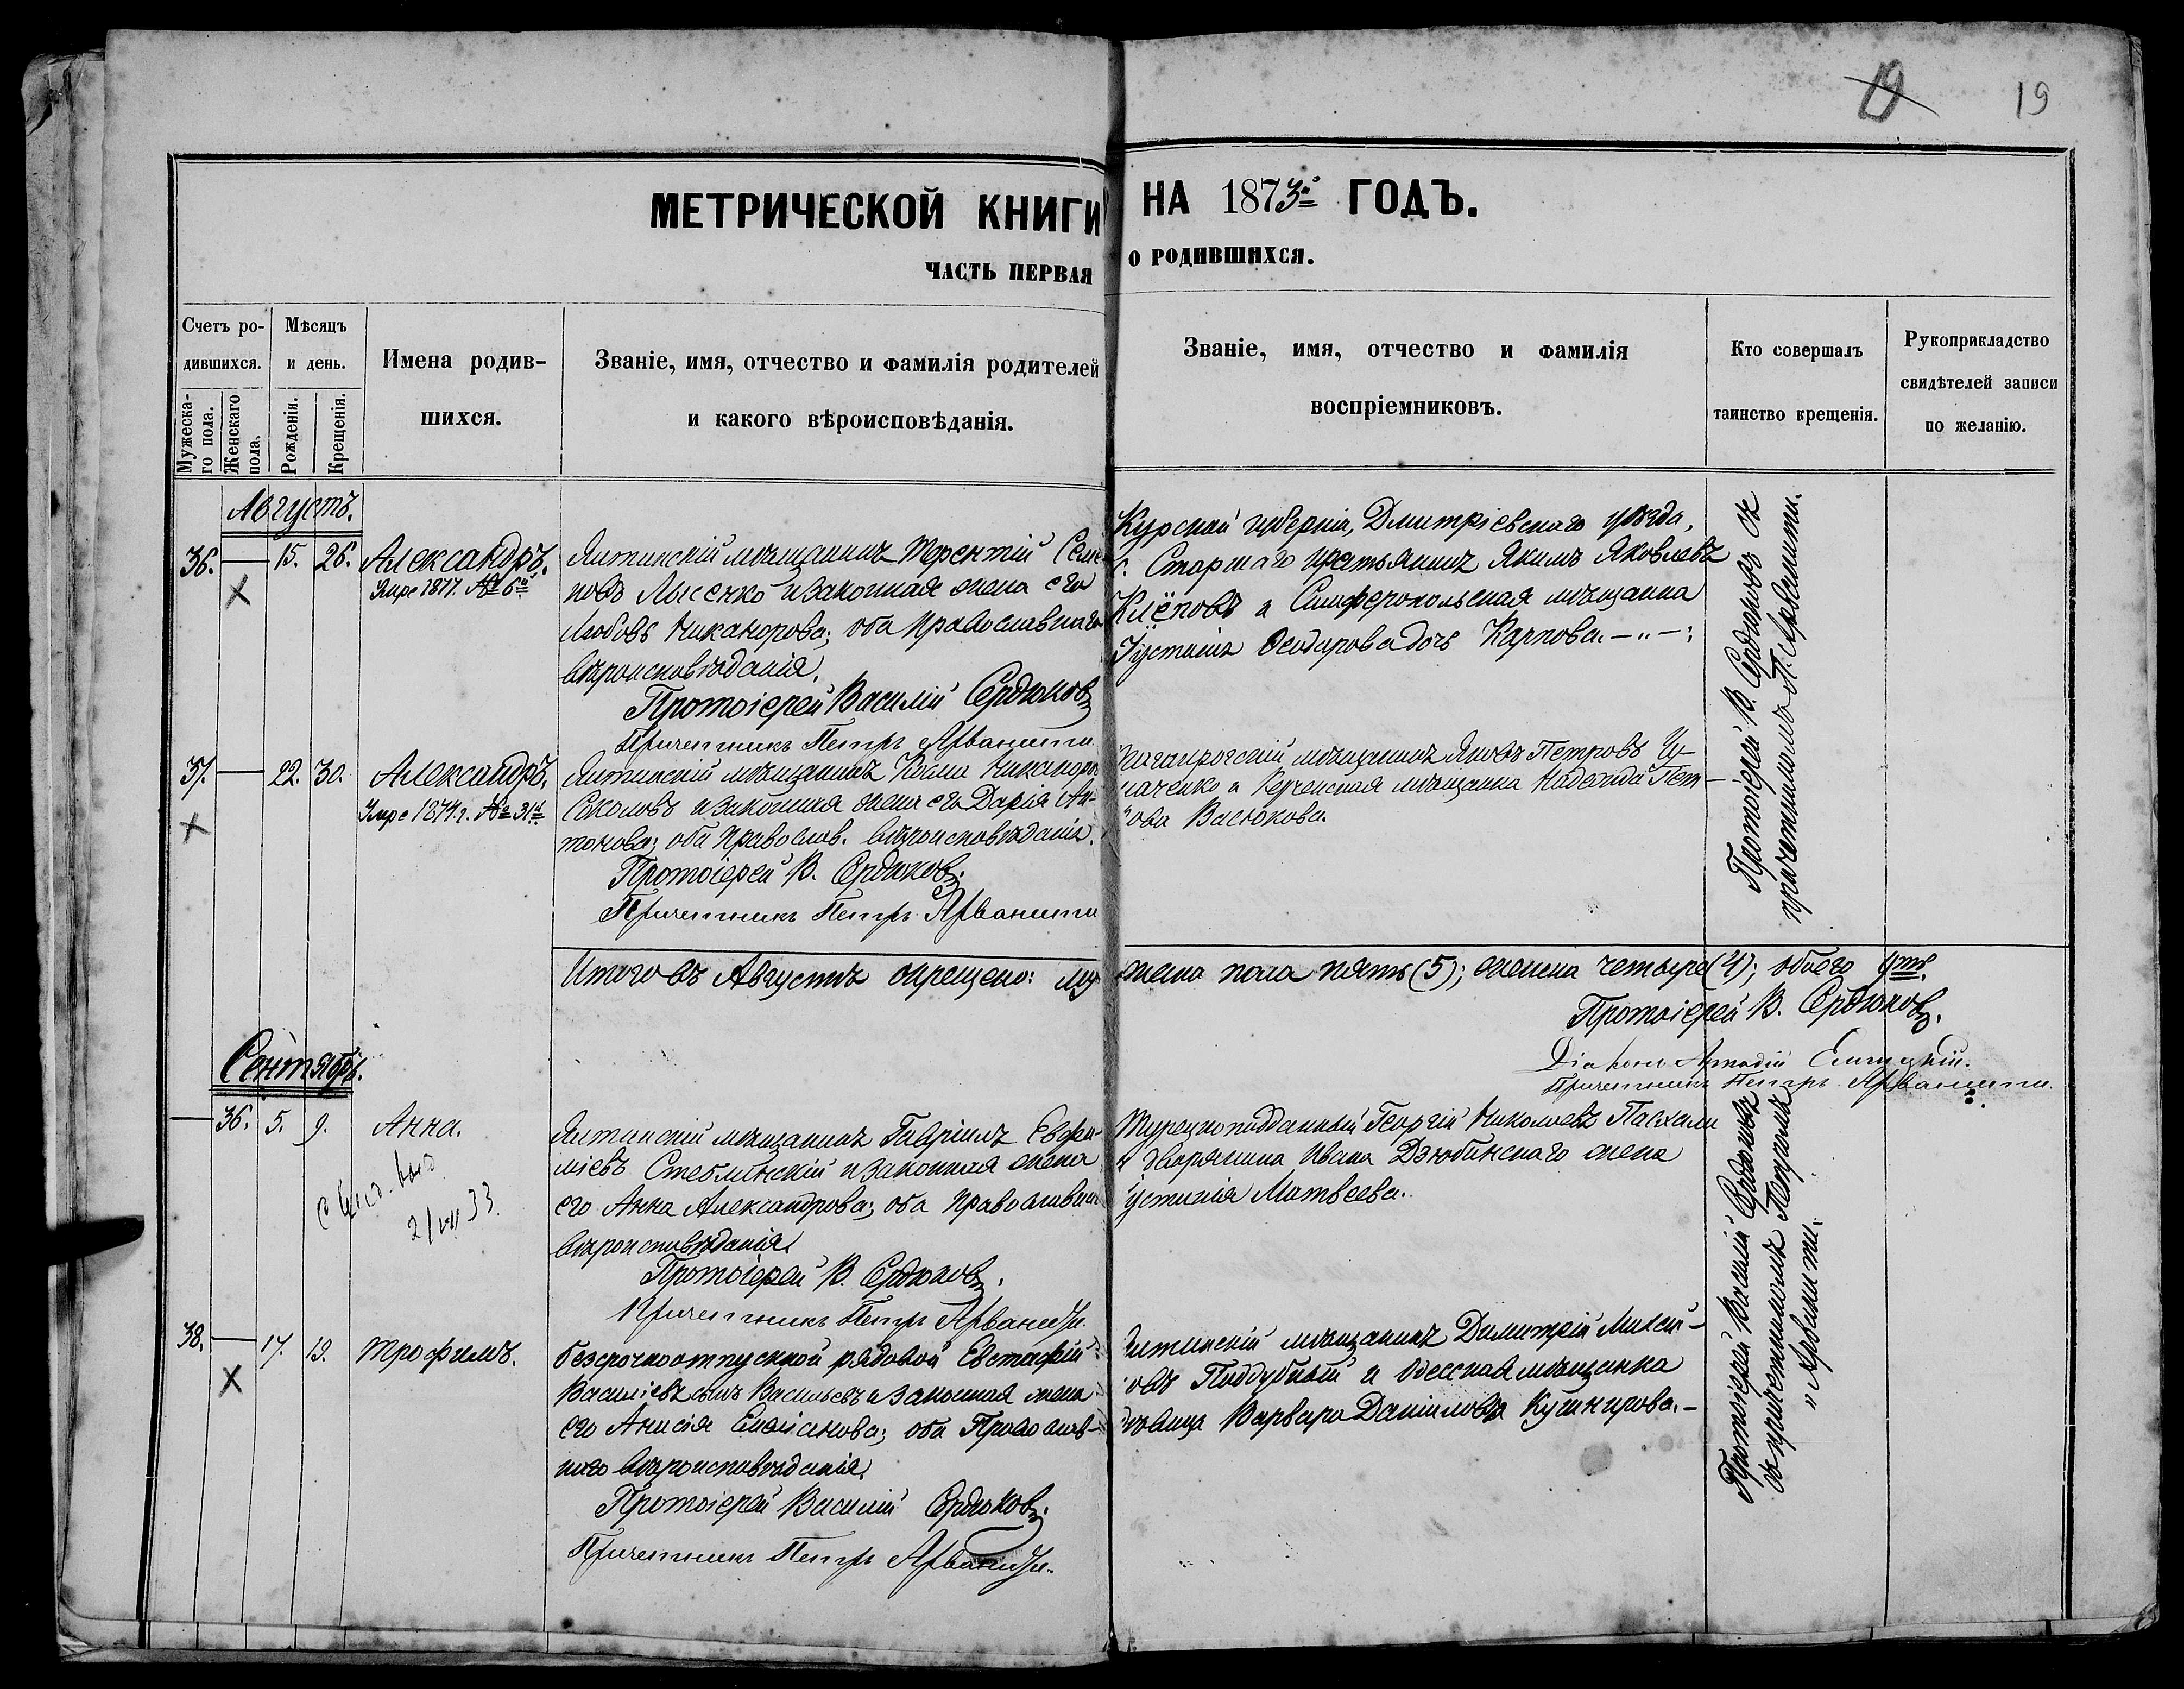 19
19
МЕТРИЧЕСКОЙ КНИГИ НА 1873й ГОДЪ.
ЧАСТЬ ПЕРВАЯ О РОДИВШИХСЯ.
Счетъ ро-
дившихся.
Мужеска-
го пола.
Женскаго
пола.
Мѣсяцъ
и день.
Рожденія.
Крещенія.
Имена родив-
шихся.
Званіе, имя, отчество и фамилія родителей
и какого вѣроисповѣданія.
Званіе, имя, отчество и фамилія
воспріемниковъ.
Кто совершалъ
таинство крещенія.
Рукоприкладство
свидѣтелей записи
по желанію.
Августъ.
36. — 15. 26. Александръ.
Умре 1877. №
Ялтинскій мѣщанинъ Терентій Семе
новъ Лысенко и законная жена его
Любовь Никанорова; оба православнаго
вѣроисповѣданія.
Протоіерей Василій Сердюковъ
Причетникъ Петръ Арванити
Курской губерніи, Дмитріевскаго уѣзда,
с. крестьянинъ Якимъ Яковлевъ
Клёповъ и Симферопольская мѣщанка
Іустинія Ѳеодорова дочь Карпова. — „ — ;
Протоіерей В. Сердюковъ съ
причетникомъ П. Арванити.
37. — 22. 30. Александръ.
Умре 1874 г. №
Ялтинскій мѣщанинъ Никаноро
Соколовъ и законная жена его Дарія Ан-
тонова; оба правослов. вѣроисповѣданія.
Протоіерей В. Сердюковъ.
Причетникъ Петръ Арванити
Таганрогскій мѣщанинъ Яковъ Петровъ
и Керченская мѣщанка Надежда Пет-
ова Васюкова.
Итого въ Августѣ окрещено: му жеска пола пять (5); женска четыре (4); обоего 9ть.
Протоіерей В. Сердюковъ.
Діаконъ Аркадій
Причетникъ Петръ Арванити.
Сентябрь.
— 36. 5. 9. Анна.
2/VII 33.
Ялтинскій мѣщанинъ Гавріилъ Евфи-
міевъ Стеблинскій и законная жена
его Анна Александрова; оба православна
вѣроисповѣданія.
Протоіерей В. Сердюковъ.
Причетникъ Петръ Арваниди.
Турецкоподданный Георгій Николаевъ Пасхали
и дворянина Ивана Дзюбинскаго жена
Іустинія Матвеева.
Протоіерей Василій Сердюковъ
съ причетникомъ Петромъ
„ Арванити.
38. — 17. 19. Трофимъ.
безсрочноотпускной рядовой Евстафій
Василіевъ сынъ Васильевъ и законная жена
его Анисія Емеліанова; оба Православ-
наго вѣроисповѣданія.
Протоіерей Василій Сердюковъ.
Причетникъ Петръ Арваниди.
Ялтинскій мѣщанинъ Димитрій
овъ Поддубный и Одесская мѣщанка
дѣвица Варвара Даніилова Кушнирова. —